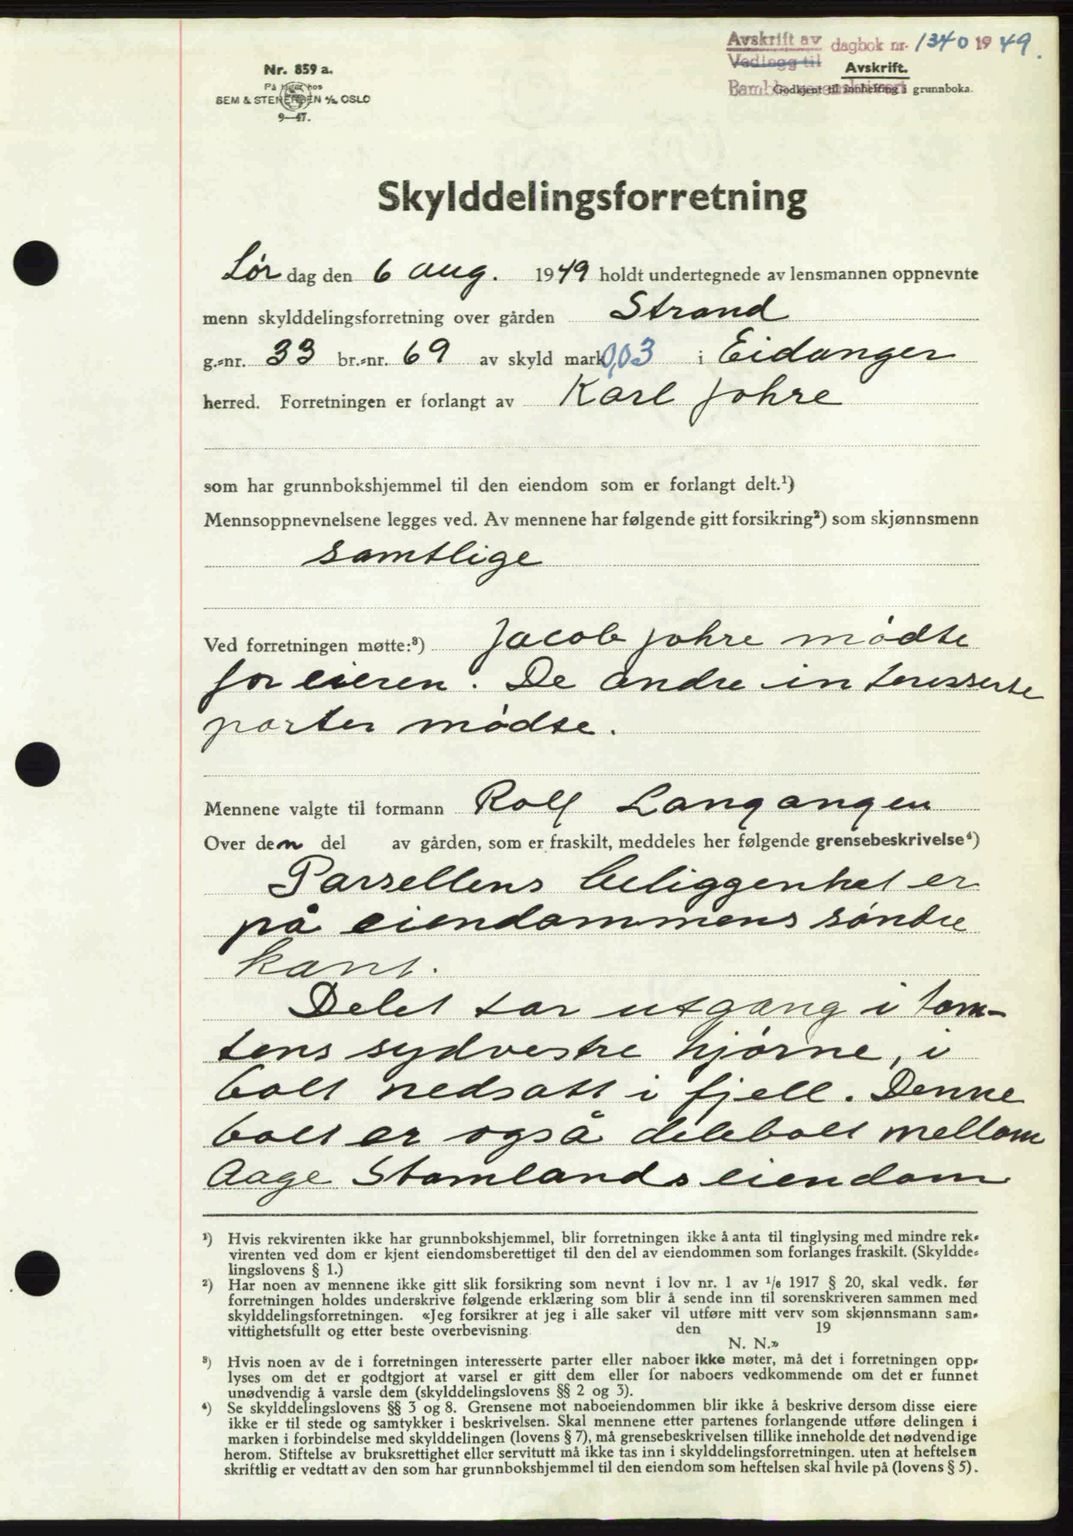 Avskrift av dagbok nr. 1340 1949.
Vedlegg til
Avskrift.
Bamble sorenskriveri
Godkjent til innhefting i grunnboka.
Nr. 859 a.
På lager hos
SEM & STENERSEN A/S, OSLO
9—47.
Skylddelingsforretning
Lørdag den 6 aug. 1949 holdt undertegnede av lensmannen oppnevnte
menn skylddelingsforretning over gården Strand
g.-nr. 33 br.-nr. 69 av skyld mark 0,03 i Eidanger
herred. Forretningen er forlangt av Karl Johre
som har grunnbokshjemmel til den eiendom som er forlangt delt.¹)
Mennsoppnevnelsene legges ved. Av mennene har følgende gitt forsikring²) som skjønnsmenn
samtlige
Ved forretningen møtte:³) Jacob Johre mødte
for eieren. De andre interesserte
parter mødte.
Mennene valgte til formann Rolf Langangen
Over den del av gården, som er fraskilt, meddeles her følgende grensebeskrivelse⁴)
Parsellens beliggenhet er
på eiendommens søndre
kant.
Delet tar utgang i tom-
tens sydvestre hjørne, i
bolt nedsatt i fjell. Denne
bolt er også delebolt mellom
Aage Stamlands eiendom
¹) Hvis rekvirenten ikke har grunnbokshjemmel, blir forretningen ikke å anta til tinglysing med mindre rek-
virenten ved dom er kjent eiendomsberettiget til den del av eiendommen som forlanges fraskilt. (Skyldde-
lingslovens § 1.)
²) Har noen av mennene ikke gitt slik forsikring som nevnt i lov nr. 1 av 1/6 1917 § 20, skal vedk. før
forretningen holdes underskrive følgende erklæring som blir å sende inn til sorenskriveren sammen med
skylddelingsforretningen. «Jeg forsikrer at jeg i alle saker vil utføre mitt verv som skjønnsmann sam-
vittighetsfullt og etter beste overbevisning den 19
N. N.»
³) Hvis noen av de i forretningen interesserte parter eller naboer ikke møter, må det i forretningen opp-
lyses om det er godtgjort at varsel er gitt dem eller for naboers vedkommende om det er funnet
unødvendig å varsle dem (skylddelingslovens §§ 2 og 3).
⁴) Se skylddelingslovens §§ 3 og 8. Grensene mot naboeiendommen blir ikke å beskrive dersom disse eiere
ikke er til stede og samtykker i beskrivelsen. Skal mennene etter partenes forlangende utføre delingen i
marken i forbindelse med skylddelingen (lovens § 7), må grensebeskrivelsen tillike inneholde det nødvendige
herom. Stiftelse av bruksrettighet eller servitutt må ikke tas inn i skylddelingsforretningen. uten at heftelsen
skriftlig er vedtatt av den som har grunnbokshjemmel til den eiendom som heftelsen skal hvile på (lovens § 5).